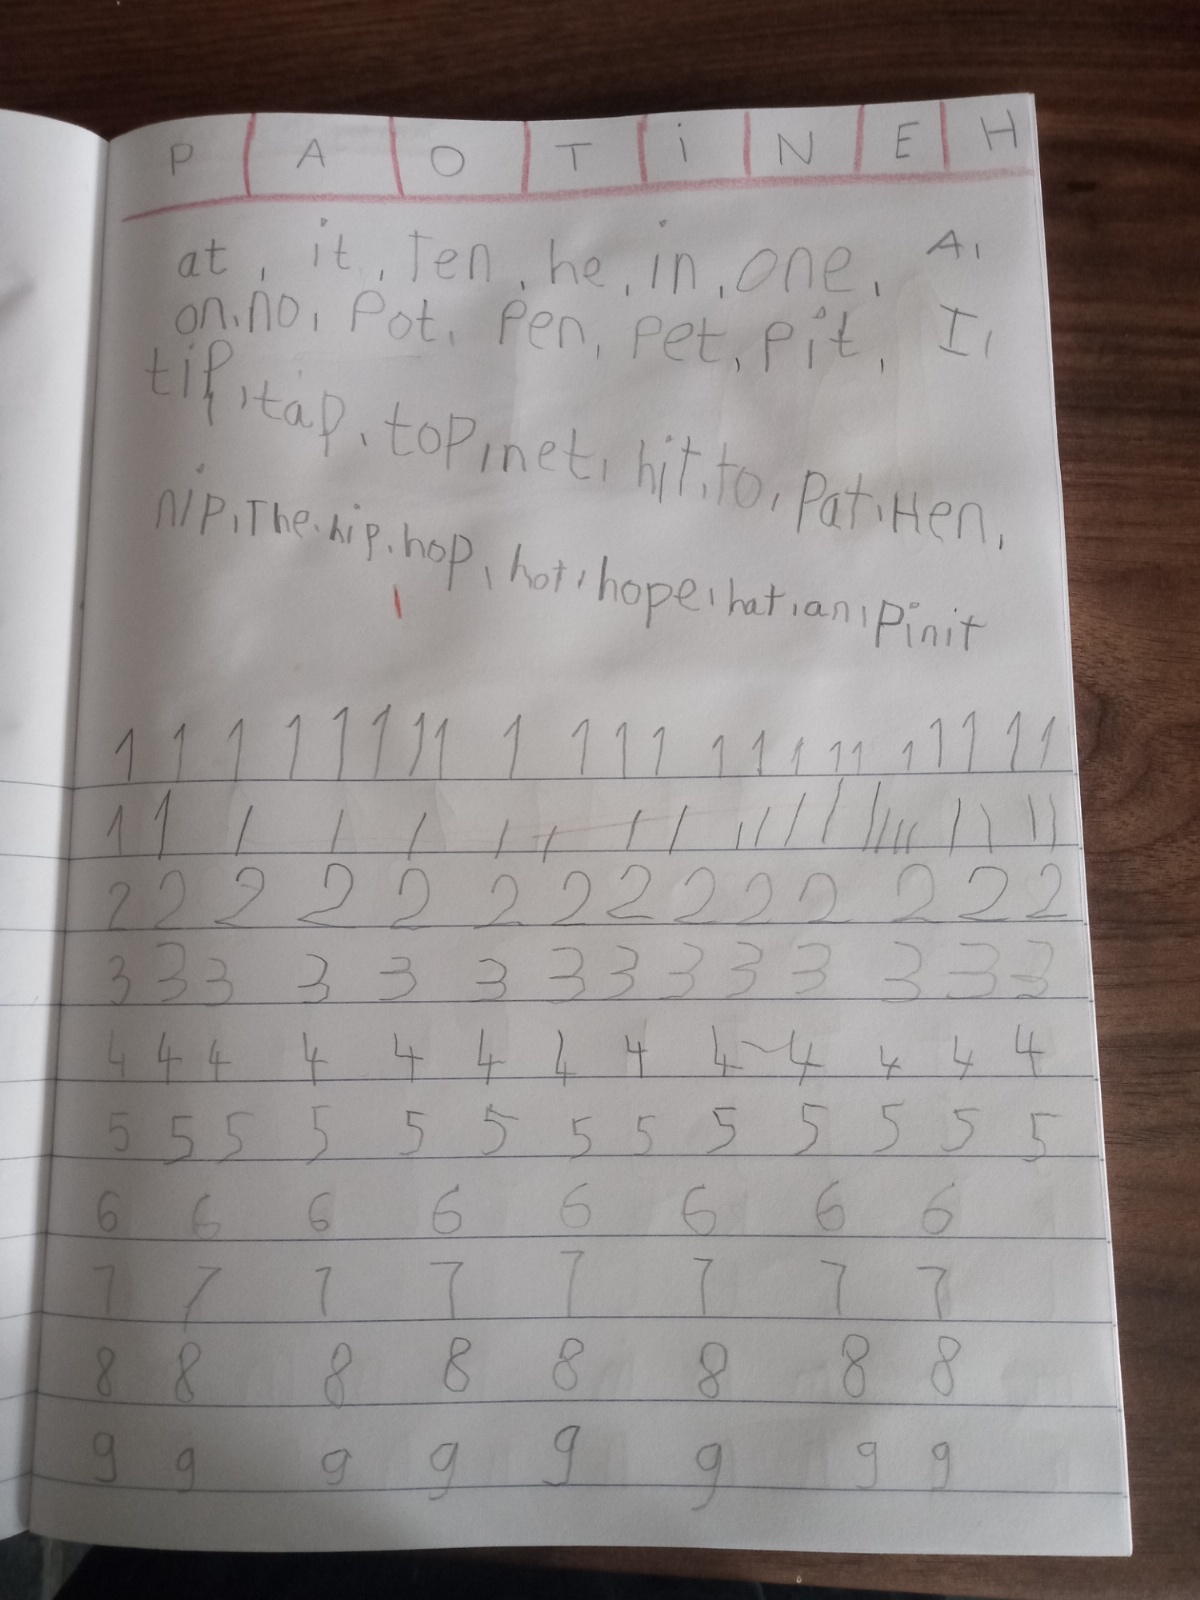 P A O T i N E H
at, it, Ten, he, in, one, A,
on, no, Pot, Pen, Pet, pit, I,
tip, tap, top, net, hit, to, Pat, Hen,
nip, The, hip, hop, hot, hope, hat, an, Pinit
1 1 1 1 1 1 1 1 1 1 1 1 1 1 1 1 1 1 1 1 1 1
1 1 1 1 1 1 1 1 1 1 1 1 1 1 1 1 1 1 1 1 1 1
2 2 2 2 2 2 2 2 2 2 2 2 2 2
3 3 3 3 3 3 3 3 3 3 3 3 3 3
4 4 4 4 4 4 4 4 4 4 4 4 4
5 5 5 5 5 5 5 5 5 5 5 5 5
6 6 6 6 6 6 6 6
7 7 7 7 7 7 7 7
8 8 8 8 8 8 8 8
9 9 9 9 9 9 9 9